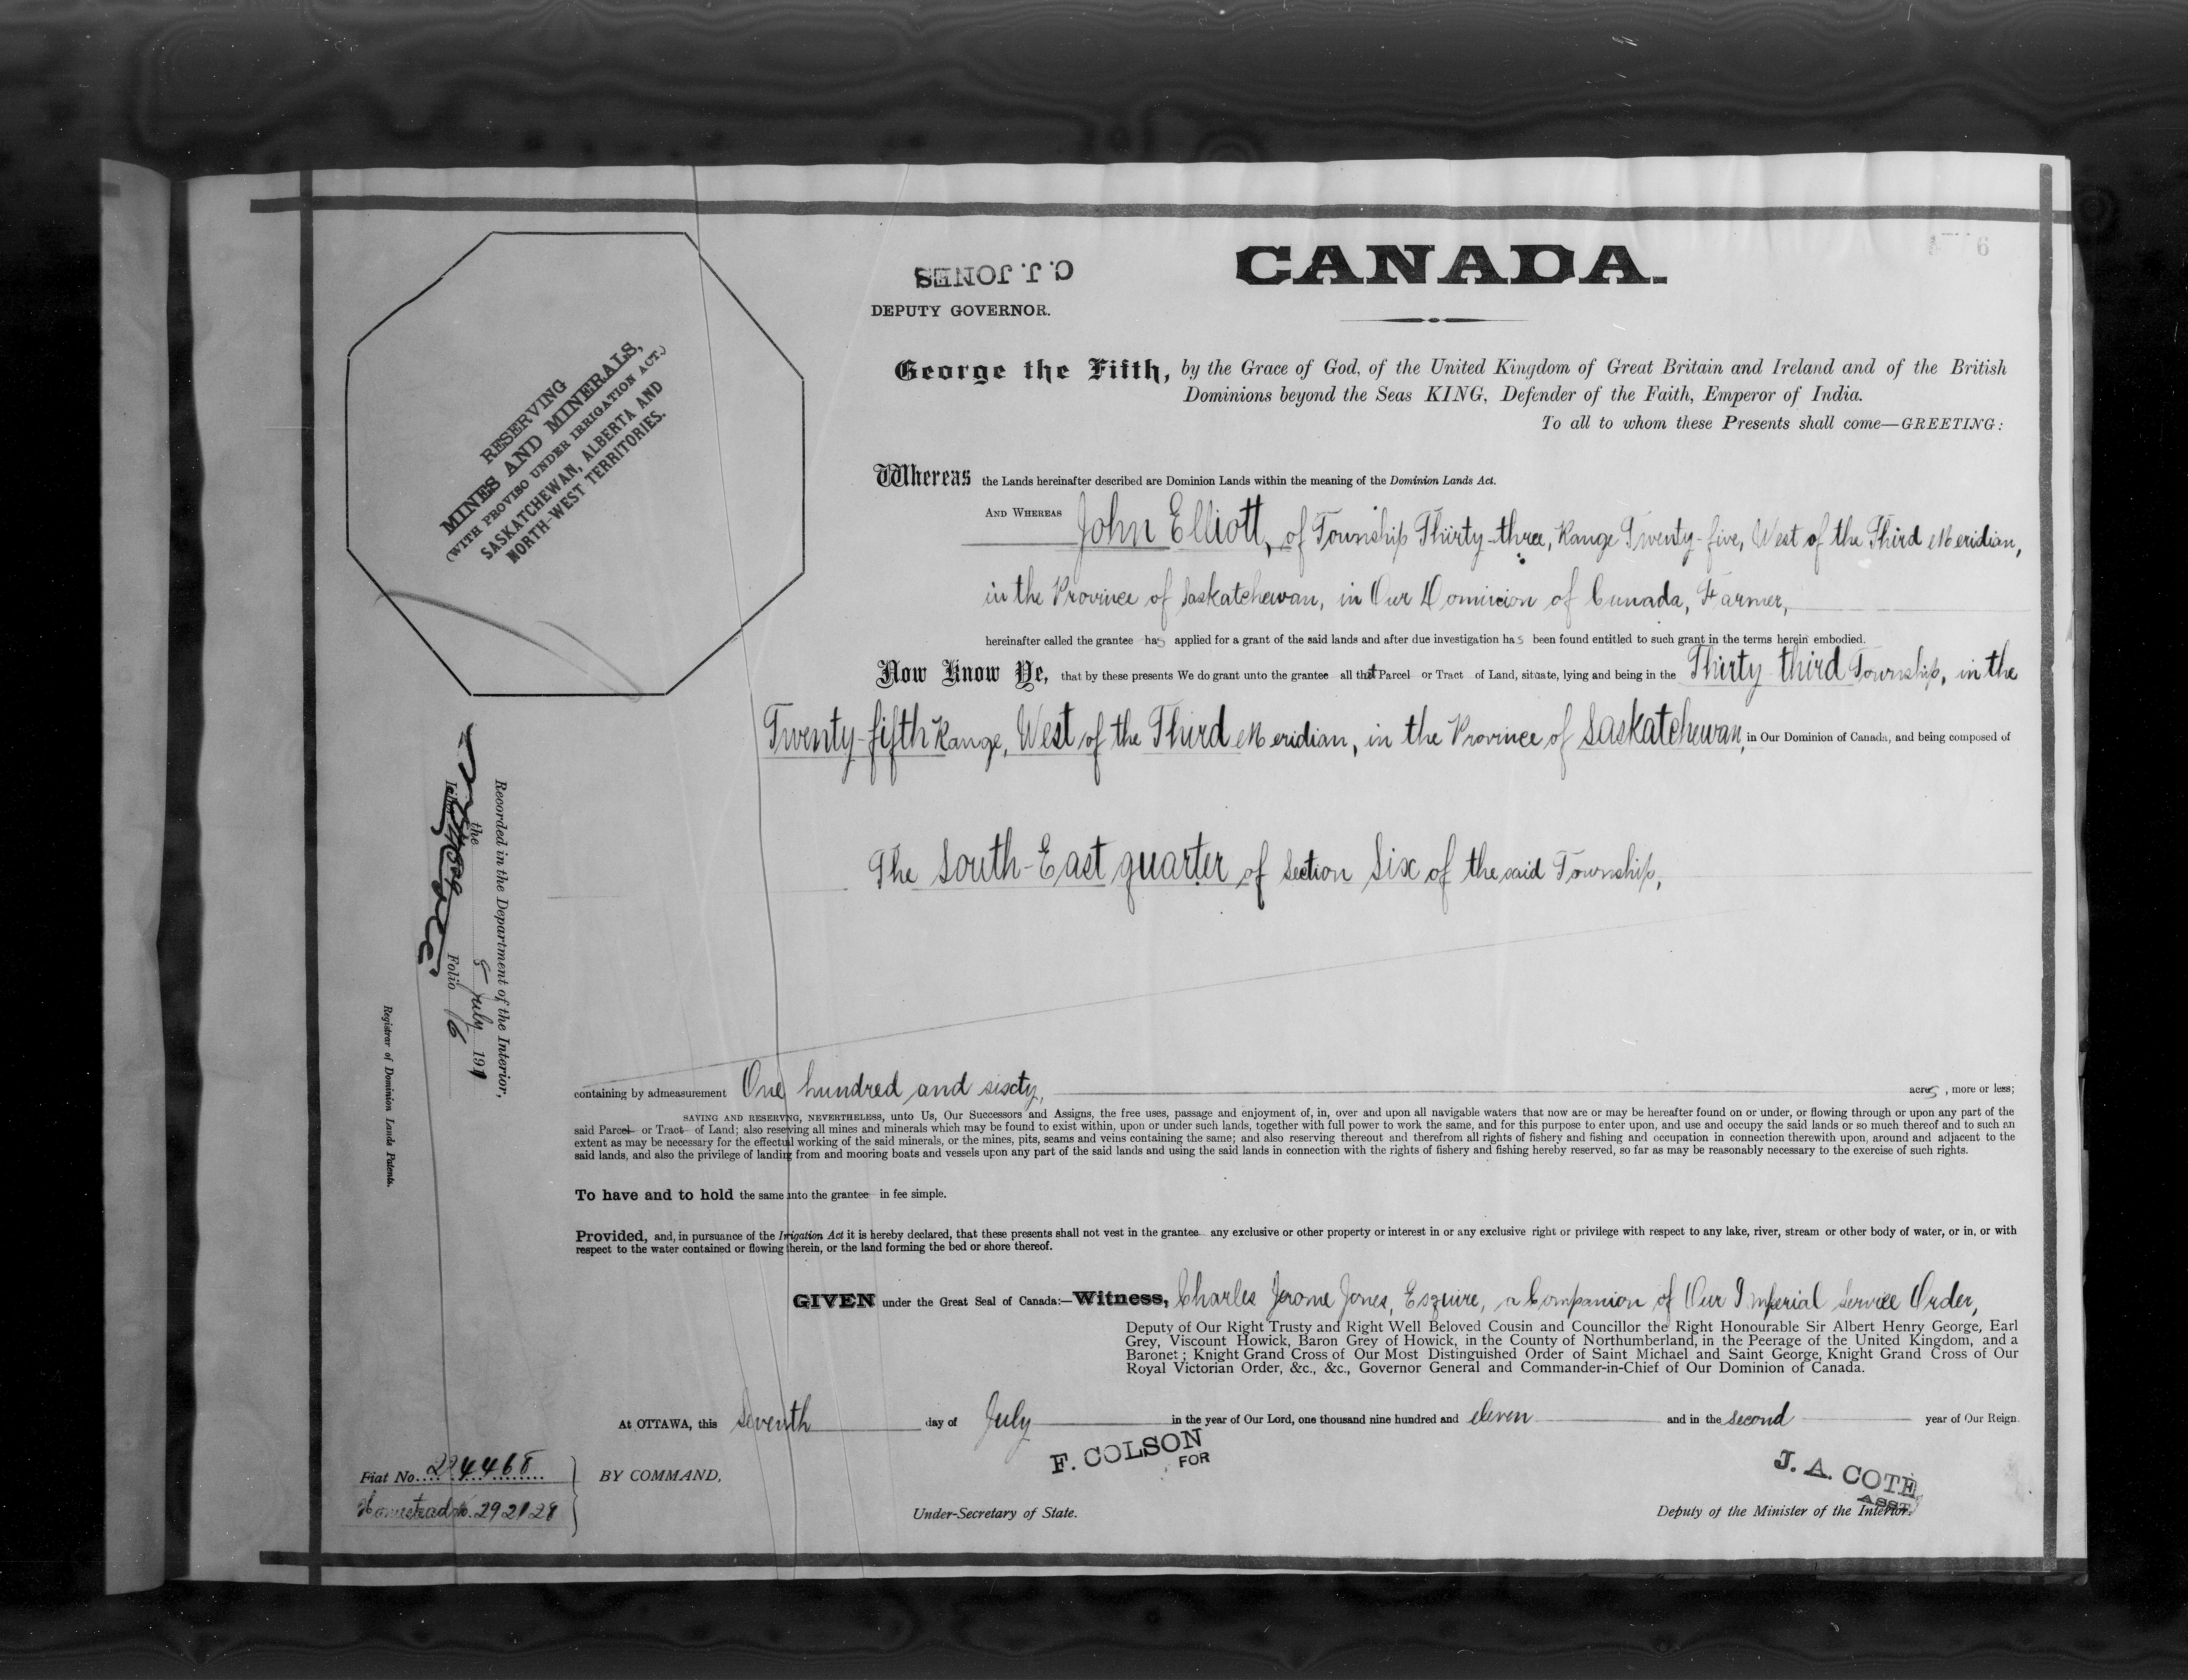 6
CANADA.
C. J. JONES
DEPUTY GOVERNOR.
RESERVING
MINES AND MINERALS,
(WITH PROVISO UNDER IRRIGATION ACT.)
SASKATCHEWAN, ALBERTA AND
NORTH-WEST TERRITORIES.
George the Fifth, by the Grace of God, of the United Kingdom of Great Britain and Ireland and of the British
Dominions beyond the Seas KING, Defender of the Faith, Emperor of India.
To all to whom these Presents shall come—GREETING:
Whereas the Lands hereinafter described are Dominion Lands within the meaning of the Dominion Lands Act.
AND WHEREAS John Elliott, of Township Thirty-three, Range Twenty-five, West of the Third Meridian,
in the Province of Saskatchewan, in Our Dominion of Canada, Farmer,
hereinafter called the grantee has applied for a grant of the said lands and after due investigation has been found entitled to such grant in the terms herein embodied.
Now Know Ye, that by these presents We do grant unto the grantee all that Parcel or Tract of Land, situate, lying and being in the Thirty-third Township, in the
Twenty-fifth Range, West of the Third Meridian, in the Province of Saskatchewan, in Our Dominion of Canada, and being composed of
The South-East quarter of Section Six of the said Township,
Recorded in the Department of the Interior,
the July 1911
Liber Folio 6
Registrar of Dominion Lands Patents.
containing by admeasurement One hundred and sixty, acres, more or less;
SAVING AND RESERVING, NEVERTHELESS, unto Us, Our Successors and Assigns, the free uses, passage and enjoyment of, in, over and upon all navigable waters that now are or may be hereafter found on or under, or flowing through or upon any part of the
said Parcel or Tract of Land; also reserving all mines and minerals which may be found to exist within, upon or under such lands, together with full power to work the same, and for this purpose to enter upon, and use and occupy the said lands or so much thereof and to such an
extent as may be necessary for the effectual working of the said minerals, or the mines, pits, seams and veins containing the same; and also reserving thereout and therefrom all rights of fishery and fishing and occupation in connection therewith upon, around and adjacent to the
said lands, and also the privilege of landing from and mooring boats and vessels upon any part of the said lands and using the said lands in connection with the rights of fishery and fishing hereby reserved, so far as may be reasonably necessary to the exercise of such rights.
To have and to hold the same unto the grantee in fee simple.
Provided, and, in pursuance of the Irrigation Act it is hereby declared, that these presents shall not vest in the grantee any exclusive or other property or interest in or any exclusive right or privilege with respect to any lake, river, stream or other body of water, or in, or with
respect to the water contained or flowing therein, or the land forming the bed or shore thereof.
GIVEN under the Great Seal of Canada:—Witness, Charles Jerome Jones, Esquire, a Companion of Our Imperial Service Order,
Deputy of Our Right Trusty and Right Well Beloved Cousin and Councillor the Right Honourable Sir Albert Henry George, Earl
Grey, Viscount Howick, Baron Grey of Howick, in the County of Northumberland, in the Peerage of the United Kingdom, and a
Baronet; Knight Grand Cross of Our Most Distinguished Order of Saint Michael and Saint George, Knight Grand Cross of Our
Royal Victorian Order, &c., &c., Governor General and Commander-in-Chief of Our Dominion of Canada.
At OTTAWA, this Seventh day of July in the year of Our Lord, one thousand nine hundred and eleven and in the second year of Our Reign.
Fiat No. 224468
BY COMMAND,
F. COLSON
FOR
J. A. COTE
ASST.
Homestead No. 292128
Under-Secretary of State.
Deputy of the Minister of the Interior.